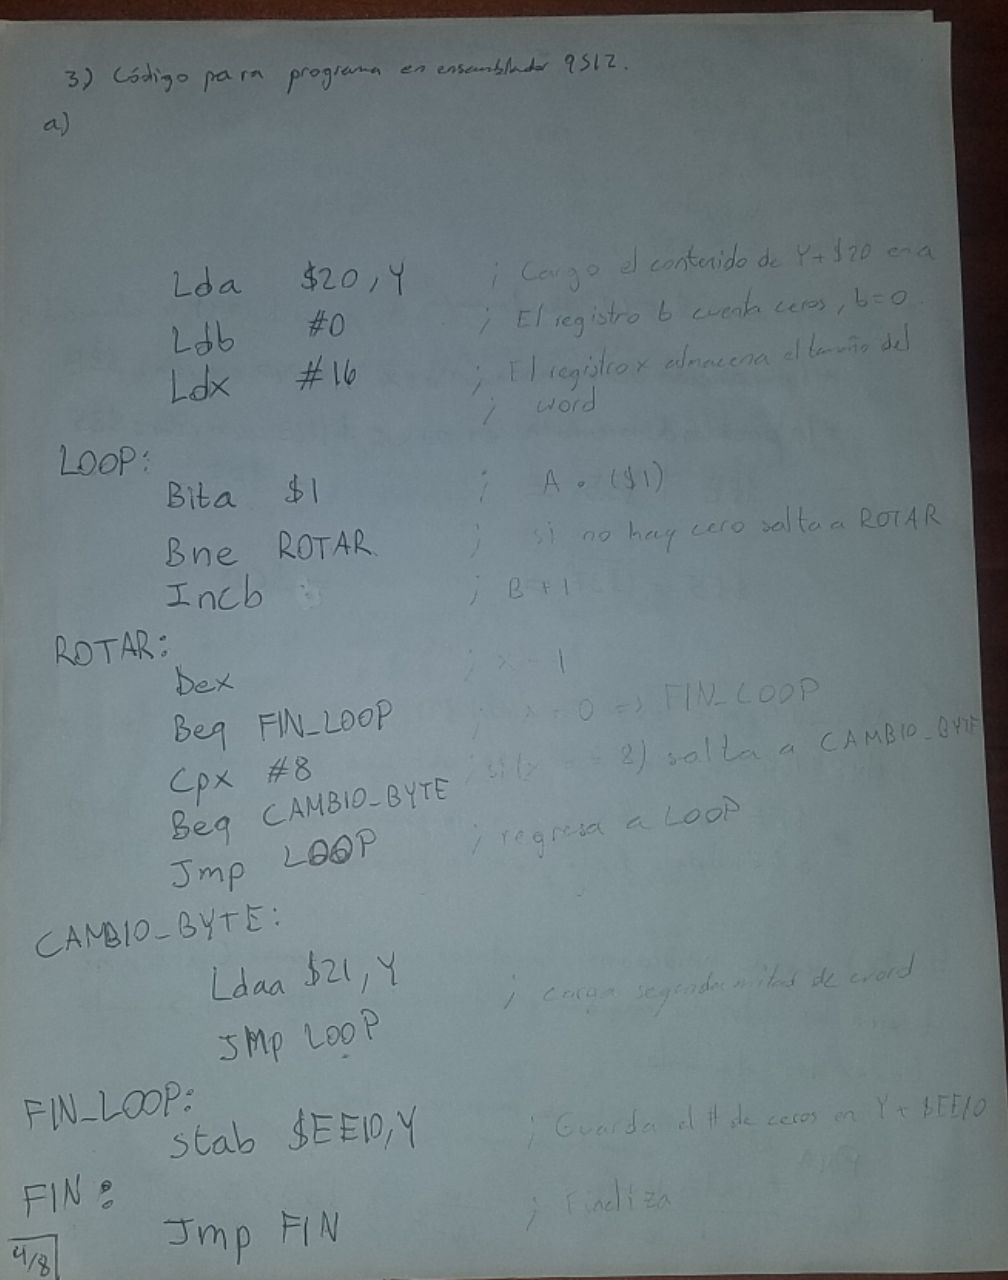 3) Código para programa en ensamblador 9S12.
a)
Lda $20,Y ; Cargo el contenido de Y+$20 en a
Ldb #0 ; El registro b cuenta ceros, b=0.
Ldx #16 ; El registro x almacena el tamaño del
; word
LOOP:
Bita $1 ; A . ($1)
Bne ROTAR ; si no hay cero salta a ROTAR
Incb ; B+1
ROTAR:
Dex ; x-1
Beq FIN_LOOP ; x=0 => FIN_LOOP
Cpx #8 ; si(x == 8) salta a CAMBIO_BYTE
Beq CAMBIO_BYTE
Jmp LOOP ; regresa a LOOP
CAMBIO_BYTE:
Ldaa $21,Y ; carga segunda mitad de word
JMp LOOP
FIN_LOOP:
stab $EE10,Y ; Guarda el # de ceros en Y+$EE10
FIN:
Jmp FIN ; Finaliza
4/8